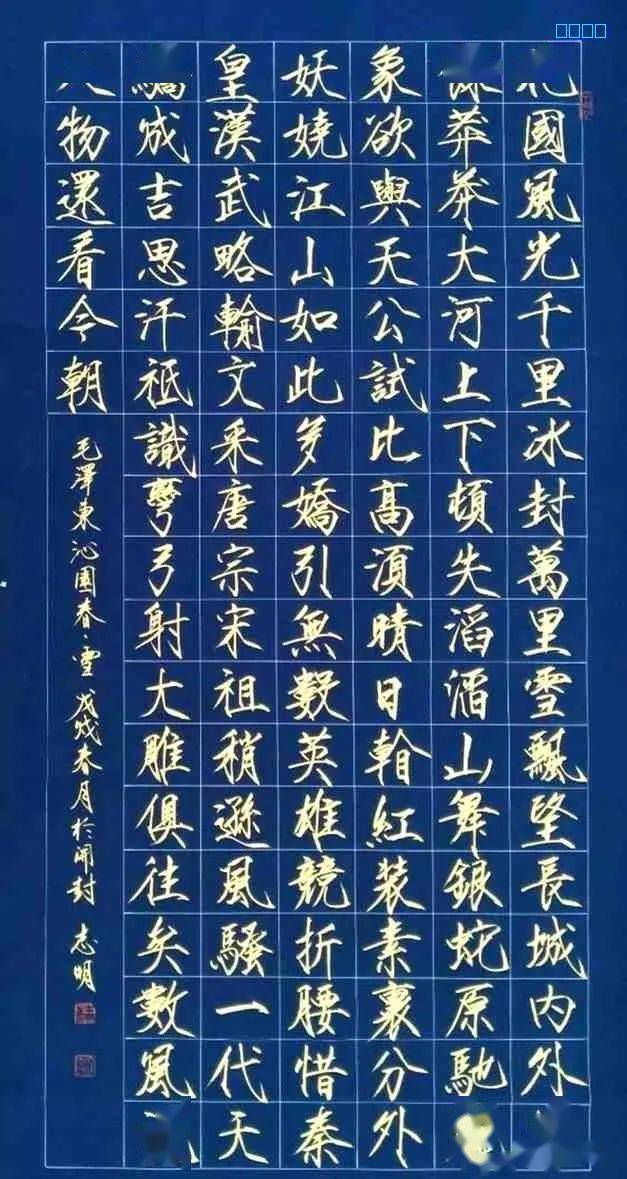 國風光千里冰封萬里雪飄望長城内外
莽莽大河上下頓失滔滔山舞銀蛇原馳
象欲與天公試比高須晴日紅裝素裹分外
妖嬈江山如此多嬌引無數英雄競折腰惜秦
皇漢武略輸文采唐宗宋祖稍遜風騷一代天
驕成吉思汗祗識彎弓射大雕俱往矣數風
物還看今朝
毛澤東沁園春·雪 戊戌春月於開封 志明